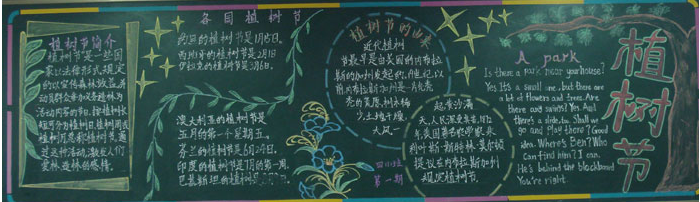 植树节简介
植树节是一些国
家以法律形式规定
的以宣传森林效益,并
动员群众参加义务植树为
活动内容的节日。按植树长
短可分为植树日、植树周或
植树月,总称植树节。通
过这种活动,激发人们
爱林、造林的感情。
各国植树节
的植树节是1月15日。
的植树节是2月1日
的植树节是3月6日。
澳大利亚的植树节是
五月的第一个星期五。
芬兰的植树节是6月24日。
印度的植树节是7月的第一周。
巴基斯坦的植树
植树节的由来
近代植树
节最早是由美国的内布拉
斯加州发起的。19世纪以
前,内布拉斯加州是一片光秃
秃的荒原,树木稀
少,土地干燥,
大风一
起,黄沙满
天,人民深受其苦。1872
年,美国著名农学家朱
利叶斯·斯特林·莫尔顿
提议在内布拉斯加州
规定植树节
四(1)班
第一期
A park
Is there a park near your house?
Yes. It's a small one, but there are
a lot of flowers and trees. Are
there any swings? Yes. And
there's a slide, too. Shall we
go and play there? Good
idea. Where's Ben? Who
can find him? I can.
He's behind the blackboard
You're right.
植
树
节